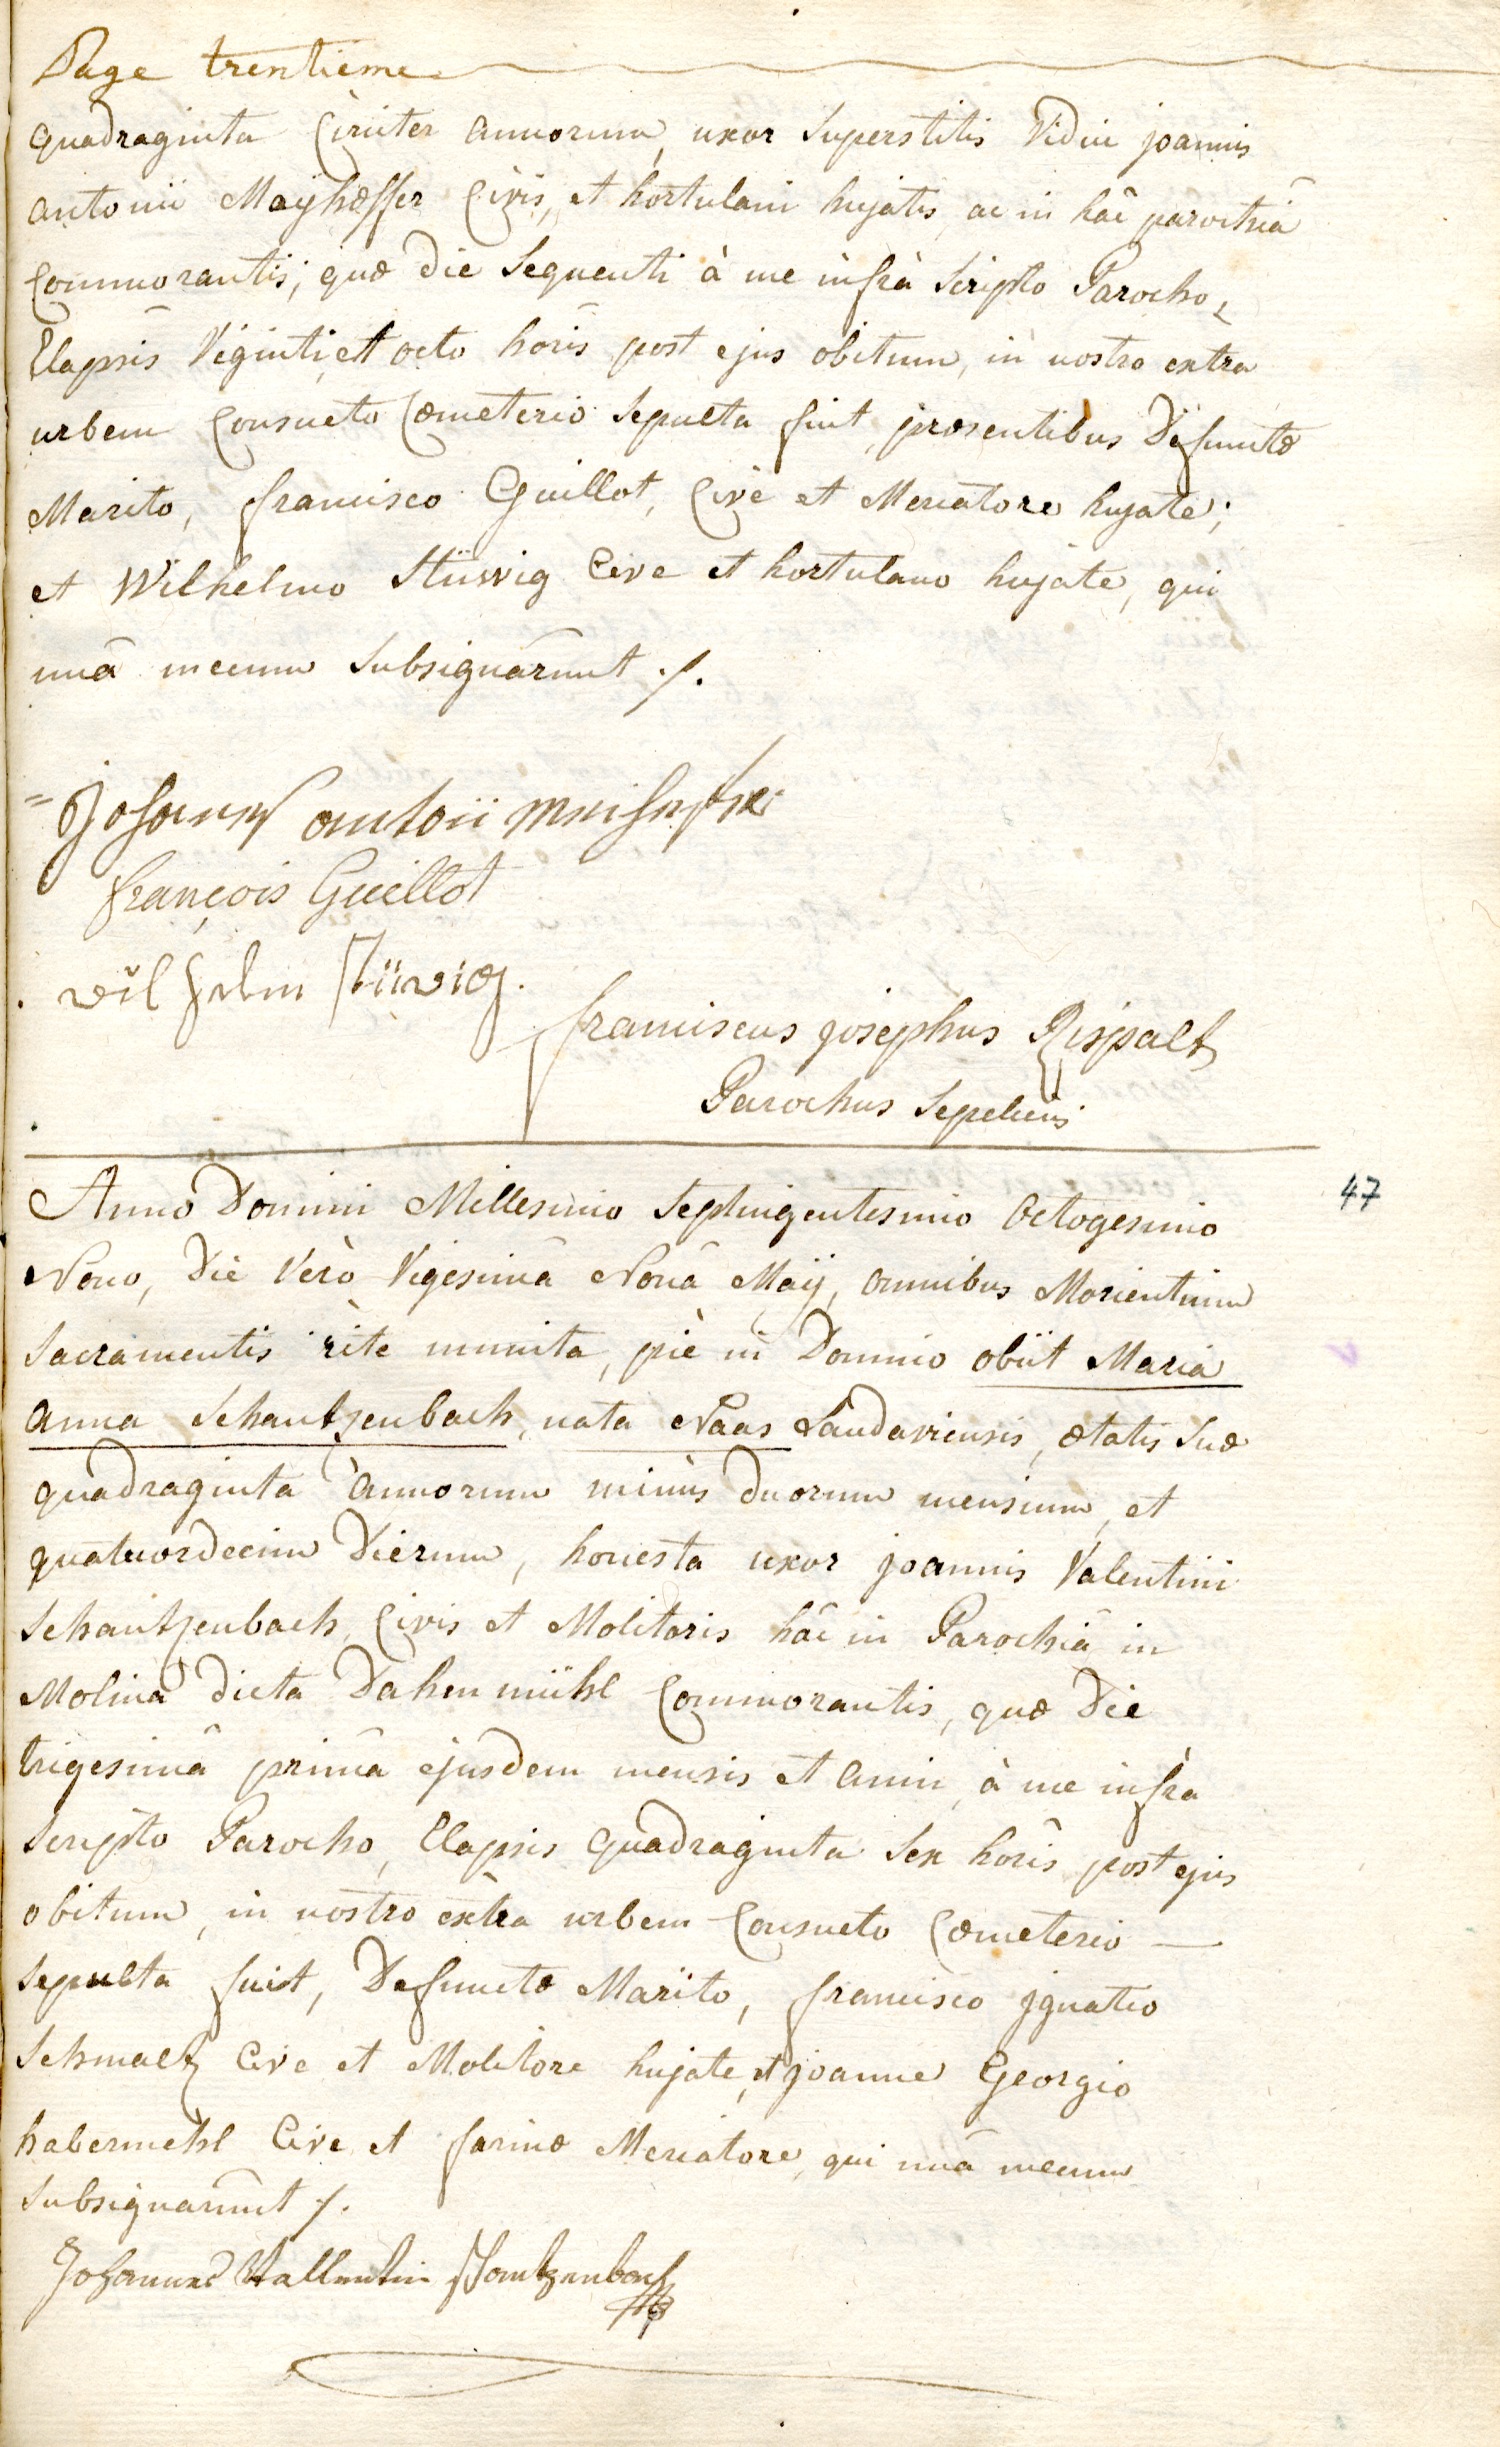 Page trentieme
quadraginta Circiter annorum, uxor Superstitis Vidui joannis
antonii Mayhöffer Civis, et hortulani hujatis, ac in hâc parochiâ
Commorantis; quæ die Sequenti à me infrà Scripto Parocho,
Elapsis Viginti et octo horis post ejus obitum, in nostro extra
urbem Consueto Cœmeterio Sepulta fuit, præsentibus Defunctæ
Marito, francisco Guillot, Cive et Mercatore hujate;
et Wilhelmo Stüwig Cive et hortulano hujate, qui
unâ mecum Subsignârunt /.
Johannes antoii
françois Guillot
wilhelm Stüwig.
franciscus josephus Rispalt
Parochus Sepeliens
47
Anno Domini Millesimo Septingentesimo Octogesimo
Nono, Die Verò Vigesimâ Nonâ Maij, omnibus Morientium
Sacramentis rite munita, piè in Domino obiit Maria
anna Schantzenbach, nata Naas Landaviensis, ætatis Suæ
quadraginta annorum minùs duorum mensium, et
quatuordecim Dierum, honesta uxor joannis Valentini
Schantzenbach, Civis et Molitoris hâc in Parochiâ in
Molinâ dicta Dahenmühl Commorantis, quæ Die
trigesimâ primâ ejusdem mensis et anni, à me infra
Scripto Parocho, Elapsis quadraginta Sex horis post ejus
obitum, in nostro extra urbem Consueto Cœmeterio —
Sepulta fuit, Defunctæ Marito, francisco jgnatio
Schmaltz Cive et Molitore hujate, et joanne Georgio
habermehl Cive et farinæ Mercatore, qui unâ mecum
Subsignârunt /.
Johannes Vallentin Schantzenbach